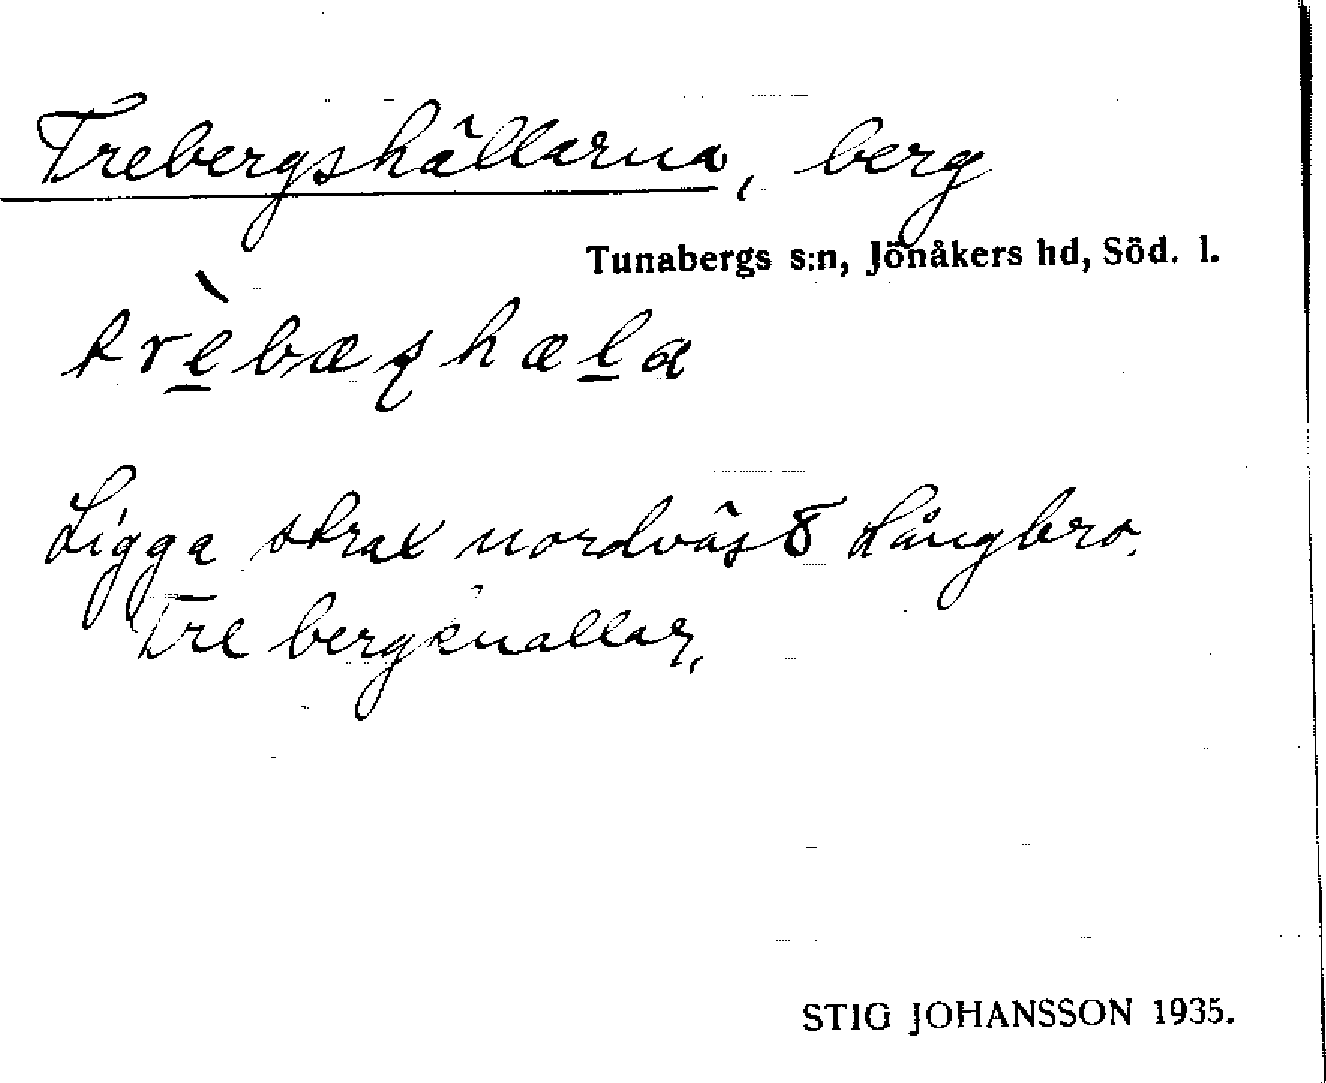 Trebergshällarna, berg
Tunabergs s:n, Jönåkers hd, Söd. l.
Ligga strax nordväst Långbro.
Tre bergknallar,
STIG JOHANSSON 1935.